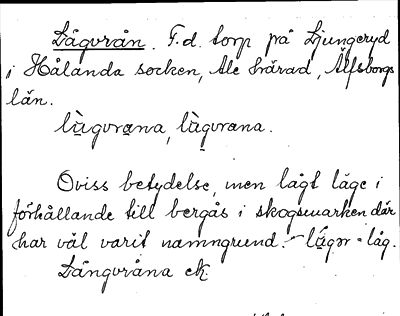 Lågvrån. F.d. torp på Ljungeryd
i Hålanda socken, Ale härad, Älfsborgs
län.
làgvrana, làgvrana.
Oviss betydelse, men lågt läge i
förhållande till bergås i skogsmarken där
har väl varit namngrund. - lágər = låg.
Långvråna ek